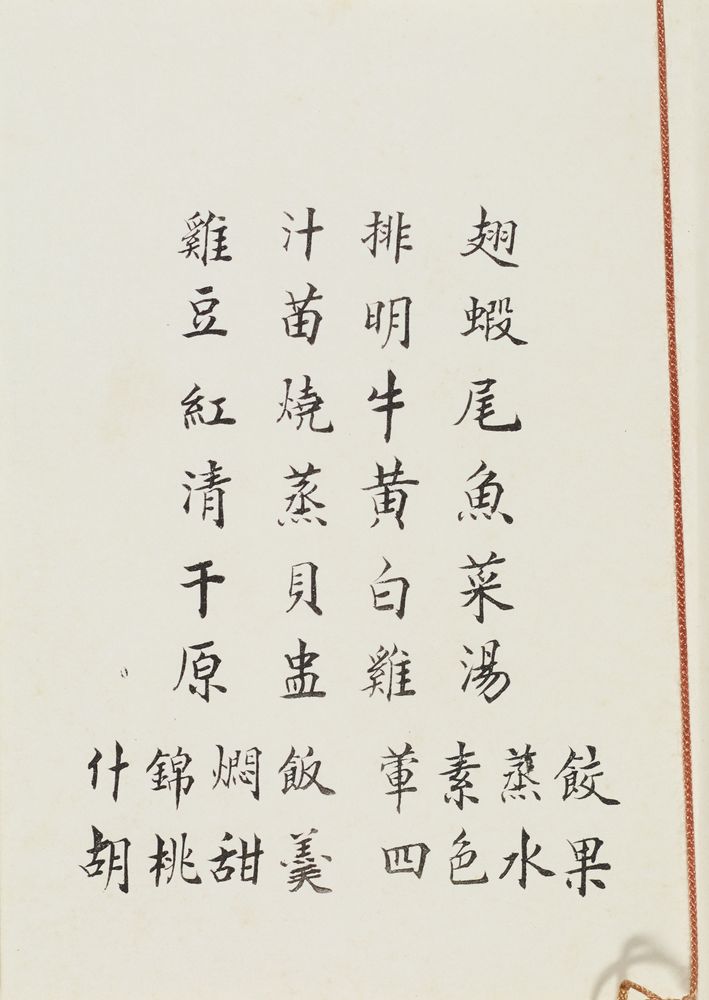 雞汁排翅
豆苗明蝦
紅燒牛尾
清蒸黃魚
干貝白菜
原盅雞湯
什錦燜飯 葷素蒸餃
胡桃甜羹 四色水果